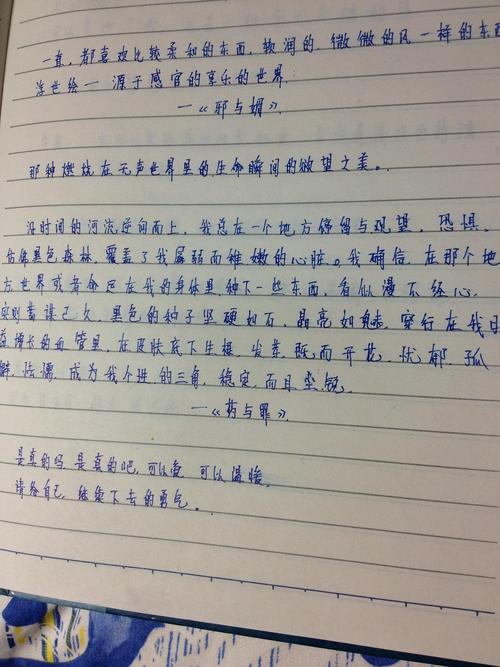 一直,都喜欢比较柔和的东西,软润的,微微的风一样的东西
浮世绘——源于感官的享乐的世界
—《邪与媚》.
那种燃烧在无声世界里的生命瞬间的欲望之美。.
沿时间的河流逆向而上,我总在一个地方停留与观望,恐惧,
仿佛黑色森林,覆盖了我孱弱而稚嫩的心脏。我确信,在那个地
方世界或者命运在我的身体里,种下一些东西,看似漫不经心,
实则蓄谋已久,黑色的种子坚硬如石,晶亮如,穿行在我日
益增长的血管里,在皮肤底下生根,发芽,既而开花,忧郁,孤
僻,怯懦,成为我个性的三角,稳定而且坚锐.
—《药与罪》.
是真的吗 是真的吧,可以爱,可以温暖.
请给自己,继续下去的勇气。.